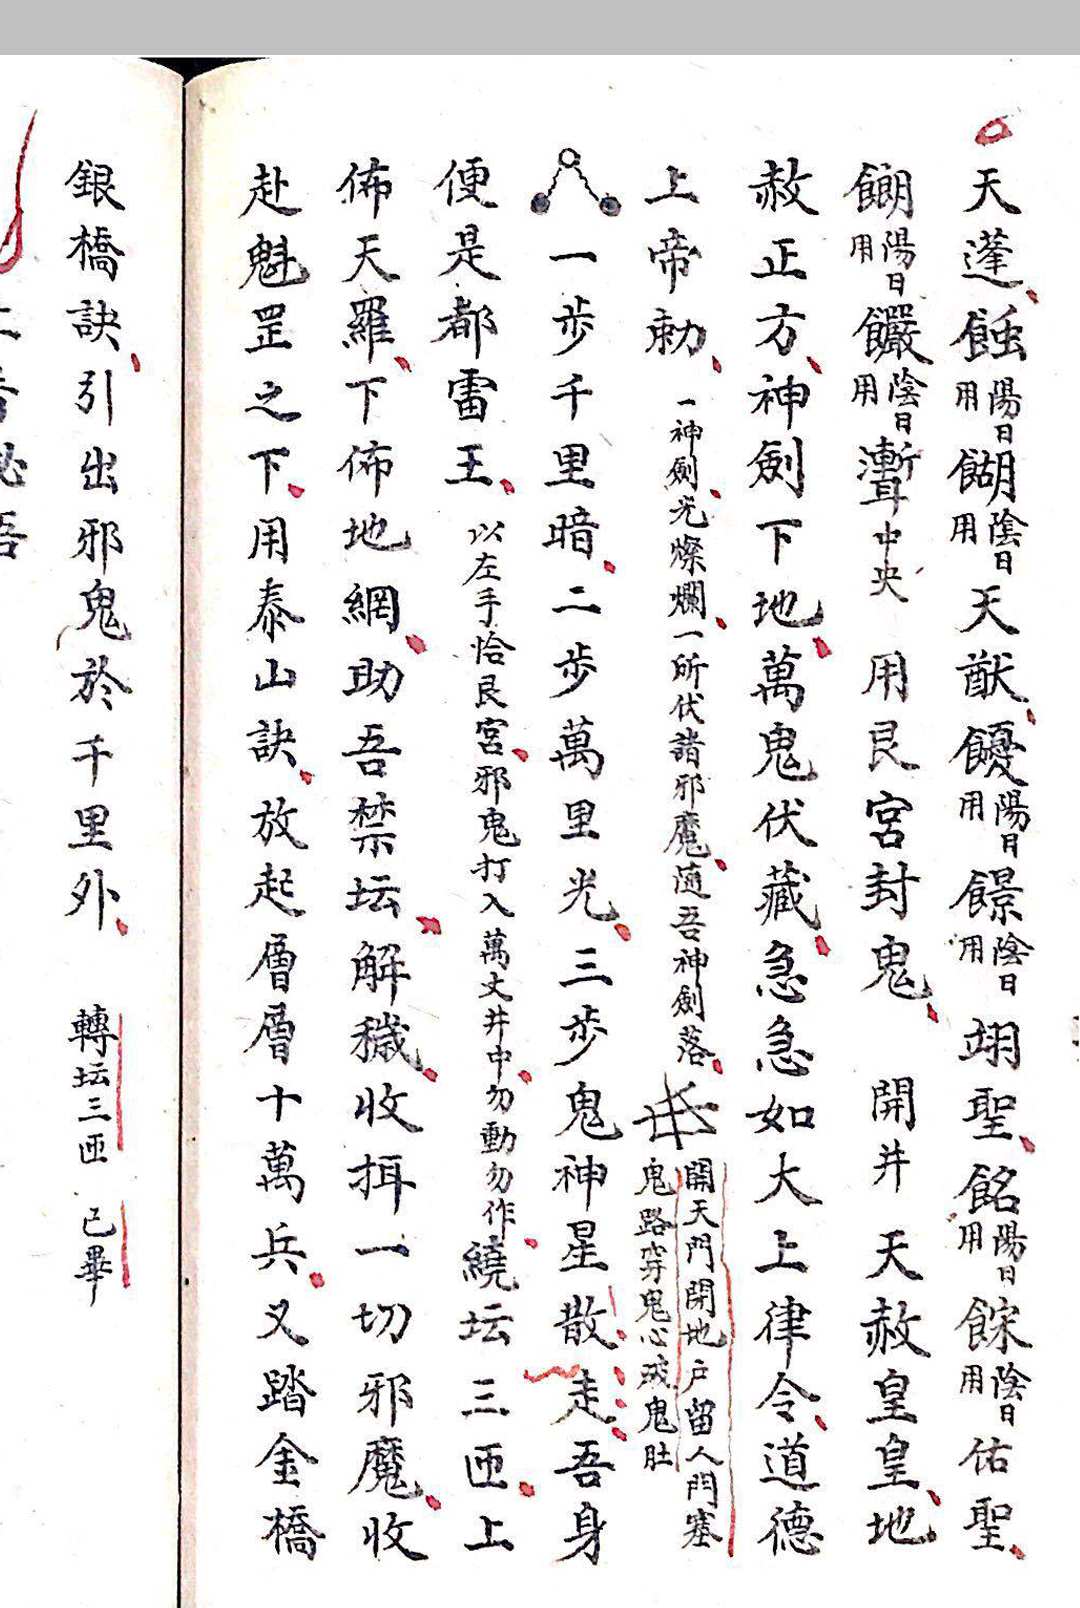 天蓬蝕陽日用餬陰日用天猷優陽日用陰日用翊聖銘陽日用餗陰日用佑聖
陽日用陰日用中央用艮宮封鬼開井天赦皇皇地
赦正方神劍下地萬鬼伏藏急急如大上律令道德
上帝勅一神劍光燦爛一所伏諸邪魔隨吾神劍落開天門閉地户留人門塞鬼路穿鬼心破鬼肚
一步千里暗二步萬里光三步鬼神星散走吾身
便是都雷王以左手恰艮宮邪鬼打入萬丈井中勿動勿作繞坛三匝上
佈天羅下佈地網助吾禁坛解穢收捐一切邪魔收
赴魁罡之下用泰山訣放起層層十萬兵又踏金橋
銀橋訣引出邪鬼於千里外轉坛三匝已畢